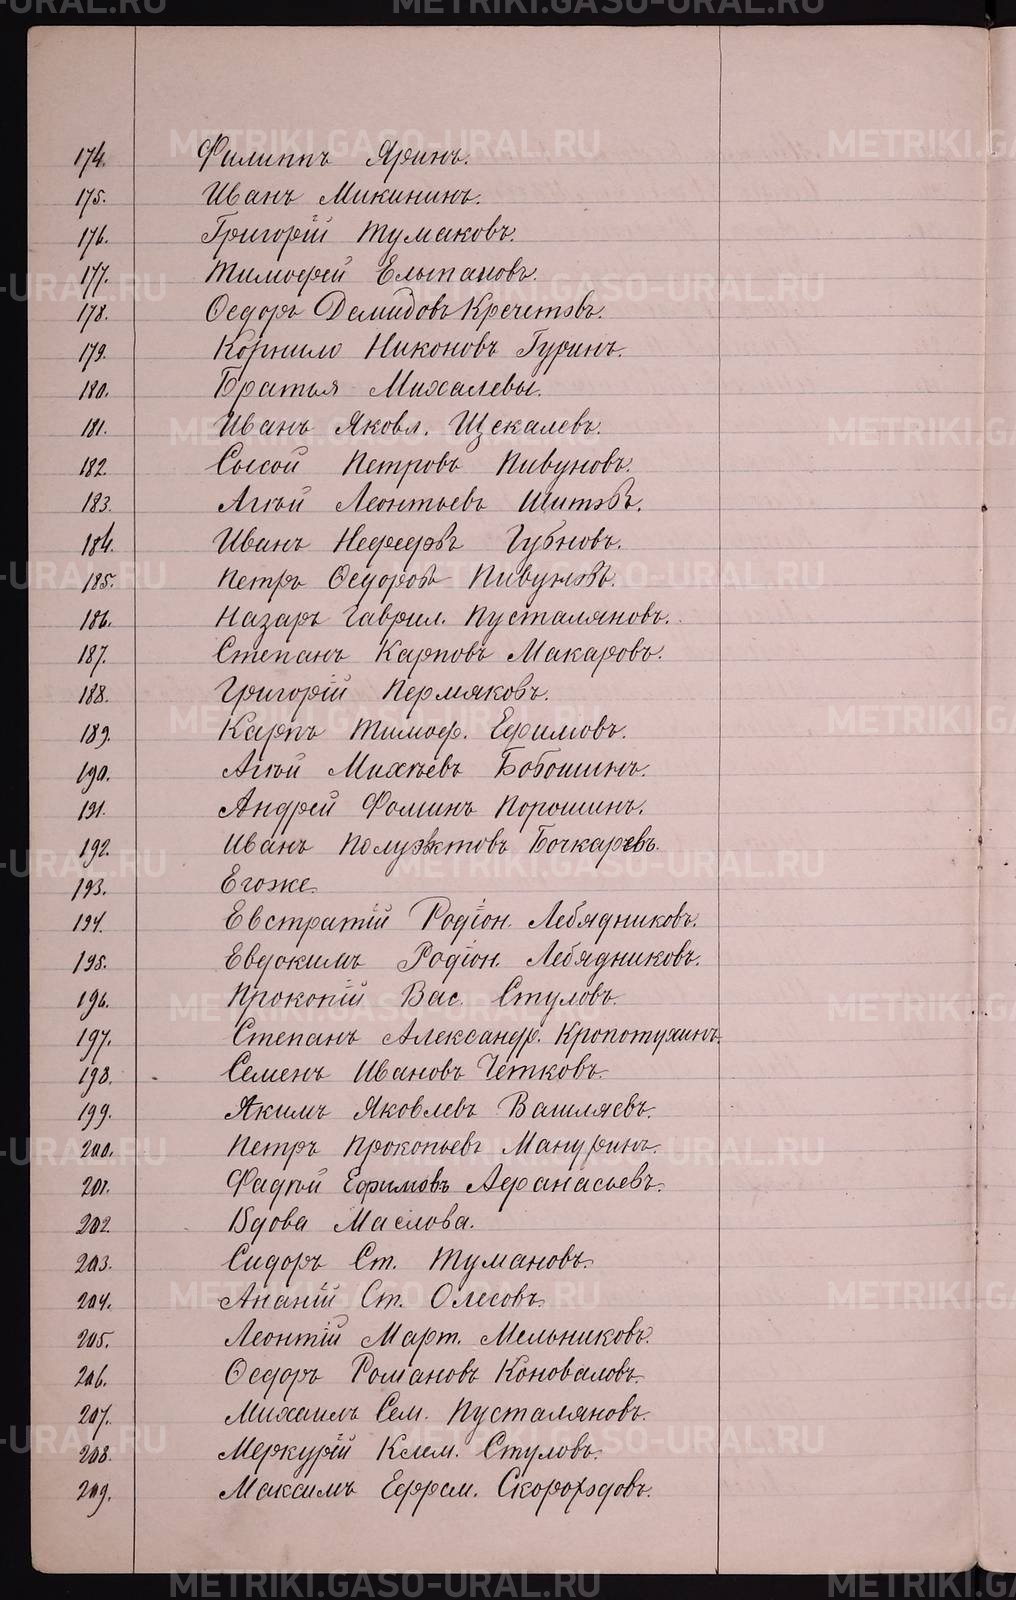 174. Филиппъ Яринъ.
175. Иванъ Микининъ.
176. Григорій Тумаковъ.
177. Тимоѳей Елыпановъ.
178. Ѳедоръ Демидовъ Кречетовъ.
179. Корнило Никоновъ Гуринъ.
180. Братья Михалевы.
181. Иванъ Яковл. Щекалевъ.
182. Сысой Петровъ Пивуновъ.
183. Агѣй Леонтьевъ Шитовъ.
184. Иванъ Нефедовъ Губновъ.
185. Петръ Ѳедоровъ Пивуновъ.
186. Назаръ Гаврил. Пусталяновъ.
187. Степанъ Карповъ Макаровъ.
188. Григорій Пермяковъ.
189. Карпъ Тимоф. Ефимовъ.
190. Агѣй Михѣевъ Бобошинъ.
191. Андрей Фоминъ Порошинъ.
192. Иванъ Полуэктовъ Бочкаревъ.
193. Егоже.
194. Евстратій Родіон. Лебядниковъ.
195. Евдокимъ Родіон. Лебядниковъ.
196. Прокопій Вас. Стуловъ.
197. Степанъ Александр. Кропотухинъ.
198. Семенъ Ивановъ Четковъ.
199. Якимъ Яковлевъ Вашляевъ.
200. Петръ Прокопьевъ Мануринъ.
201. Фадѣй Ефимовъ Афанасьевъ.
202. Вдова Маслова.
203. Сидоръ Ст. Тумановъ.
204. Ананій Ст. Олесовъ.
205. Леонтій Март. Мельниковъ.
206. Ѳедоръ Романовъ Коноваловъ.
207. Михаилъ Сем. Пусталяновъ.
208. Меркурій Клем. Стуловъ.
209. Максимъ Ефрем. Скороходовъ.